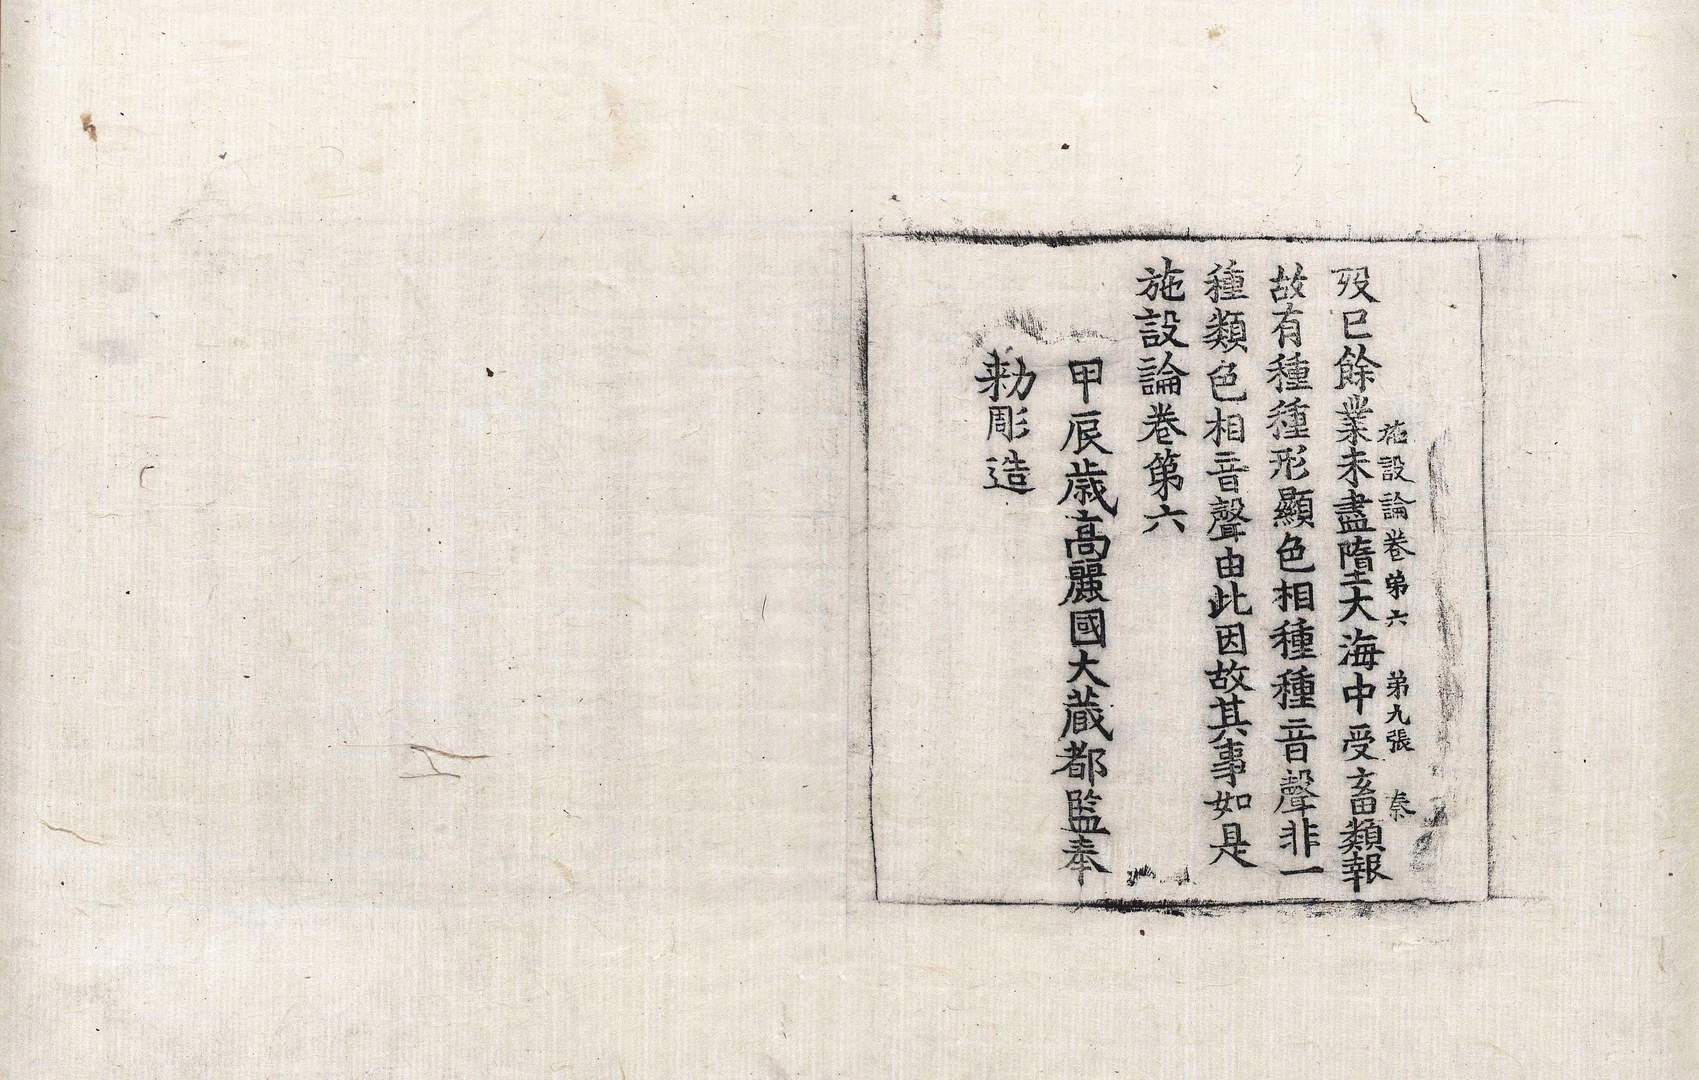 施設論卷第六 第九張 秦
歿已餘業未盡墮大海中受畜類報
故有種種形顯色相種種音聲非一
種類色相音聲由此因故其事如是
施設論卷第六
甲辰歲高麗國大藏都監奉
勅彫造